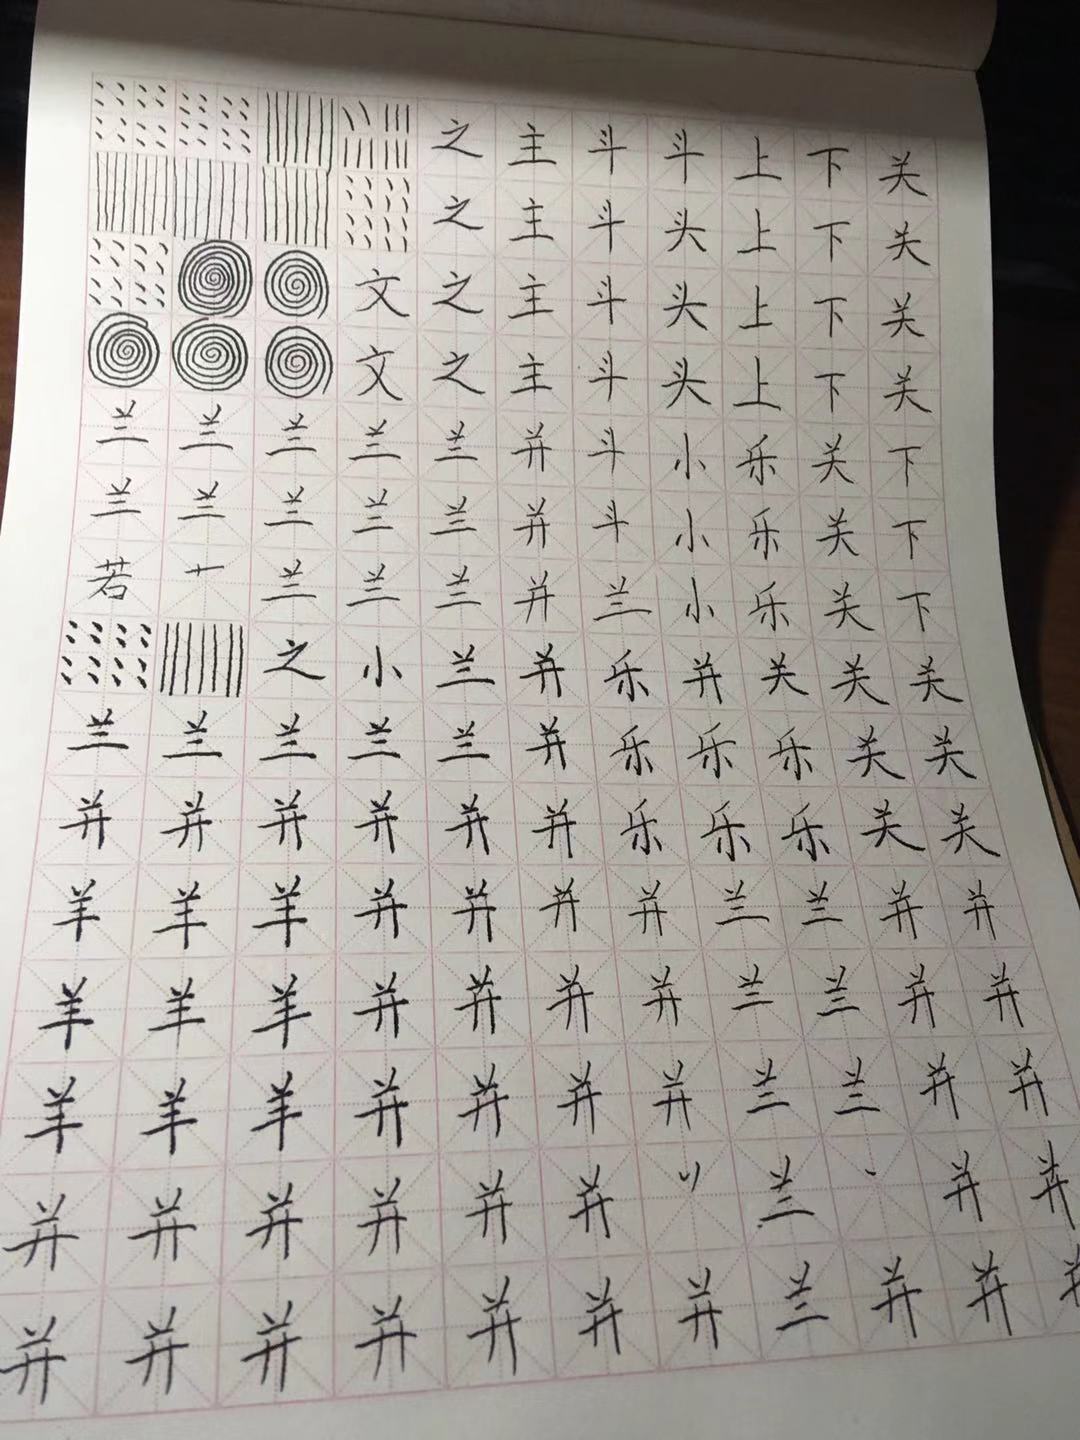 之主斗斗上下关
之主斗头上下关
文之主斗头上下关
文之主斗头上下关
兰兰兰兰兰并斗小乐关下
兰兰兰兰兰并斗小乐关下
若十兰兰兰并兰小乐关下
之小兰并乐并关关关
兰兰兰兰兰并乐乐乐关关
并并并并并并乐乐乐关关
羊羊羊并并并并兰兰并并
羊羊羊并并并并兰兰并并
羊羊羊并并并并兰兰并并
并并并并并并兰并并
并并并并并并并兰并并